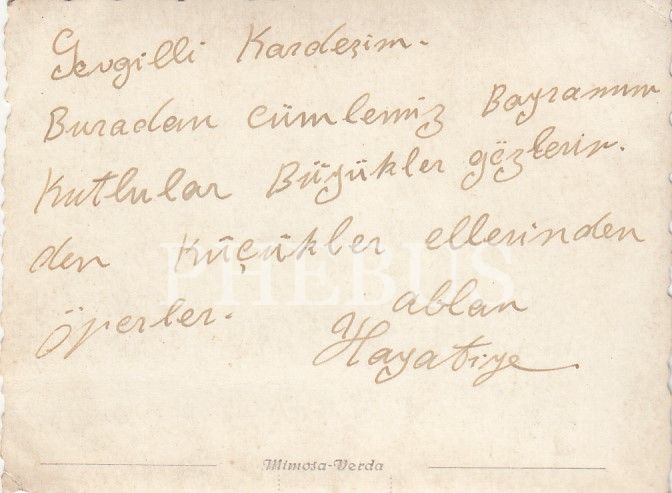 Sevgilli Kardeşim.
Buradan cümlemiz Bayramını
Kutlular Büyükler gözlerin.
den Küçükler ellerinden
öperler.
ablan
Hayatiye
PHEBUS
Mimosa-Verda